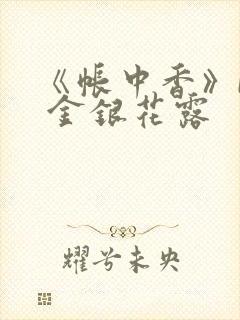 《帐中香》
金银花露
耀兮未央